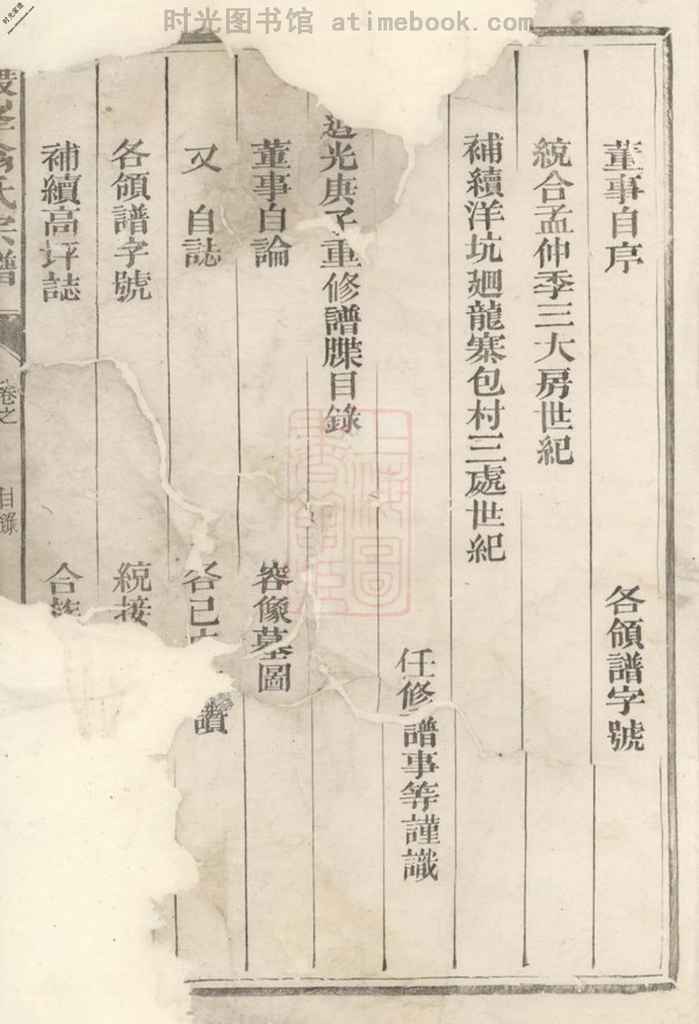 时光图书馆 atimebook.com
董事自序 各領譜字號
統合孟仲季三大房世紀
補續洋坑廻龍寨包村三處世紀
任修譜事等謹識
道光庚子重修譜牒目錄
董事自論 容像墓圖
又自誌 各已 讚
各領譜字號 統接
補續高坪誌 合族
氏宗譜 卷之 目錄